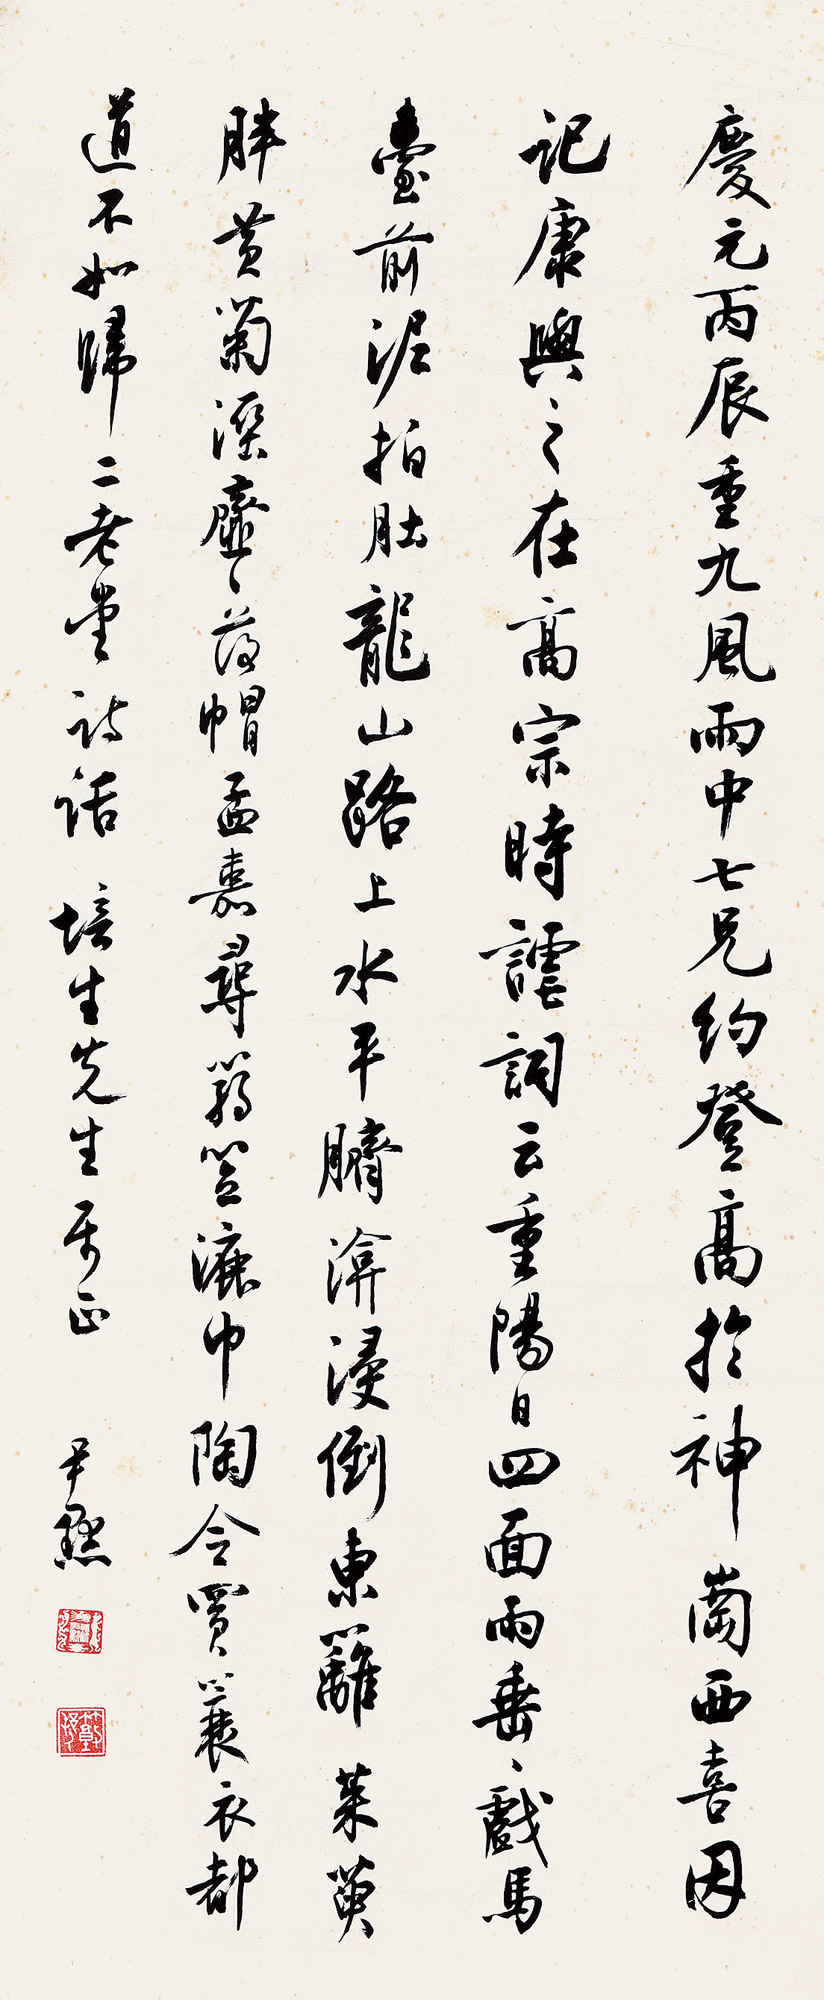 慶元丙辰重九風雨中七兄約登高於神岡西喜因
記康與之在高宗時謔詞云重陽日四面雨垂垂戲馬
臺前泥拍肚龍山路上水平臍渰浸倒東籬茱萸
胖黃菊濕虀虀落帽孟嘉尋篛笠漉巾陶令買蓑衣都
道不如歸二老堂詩話 培生先生屬正
尹默